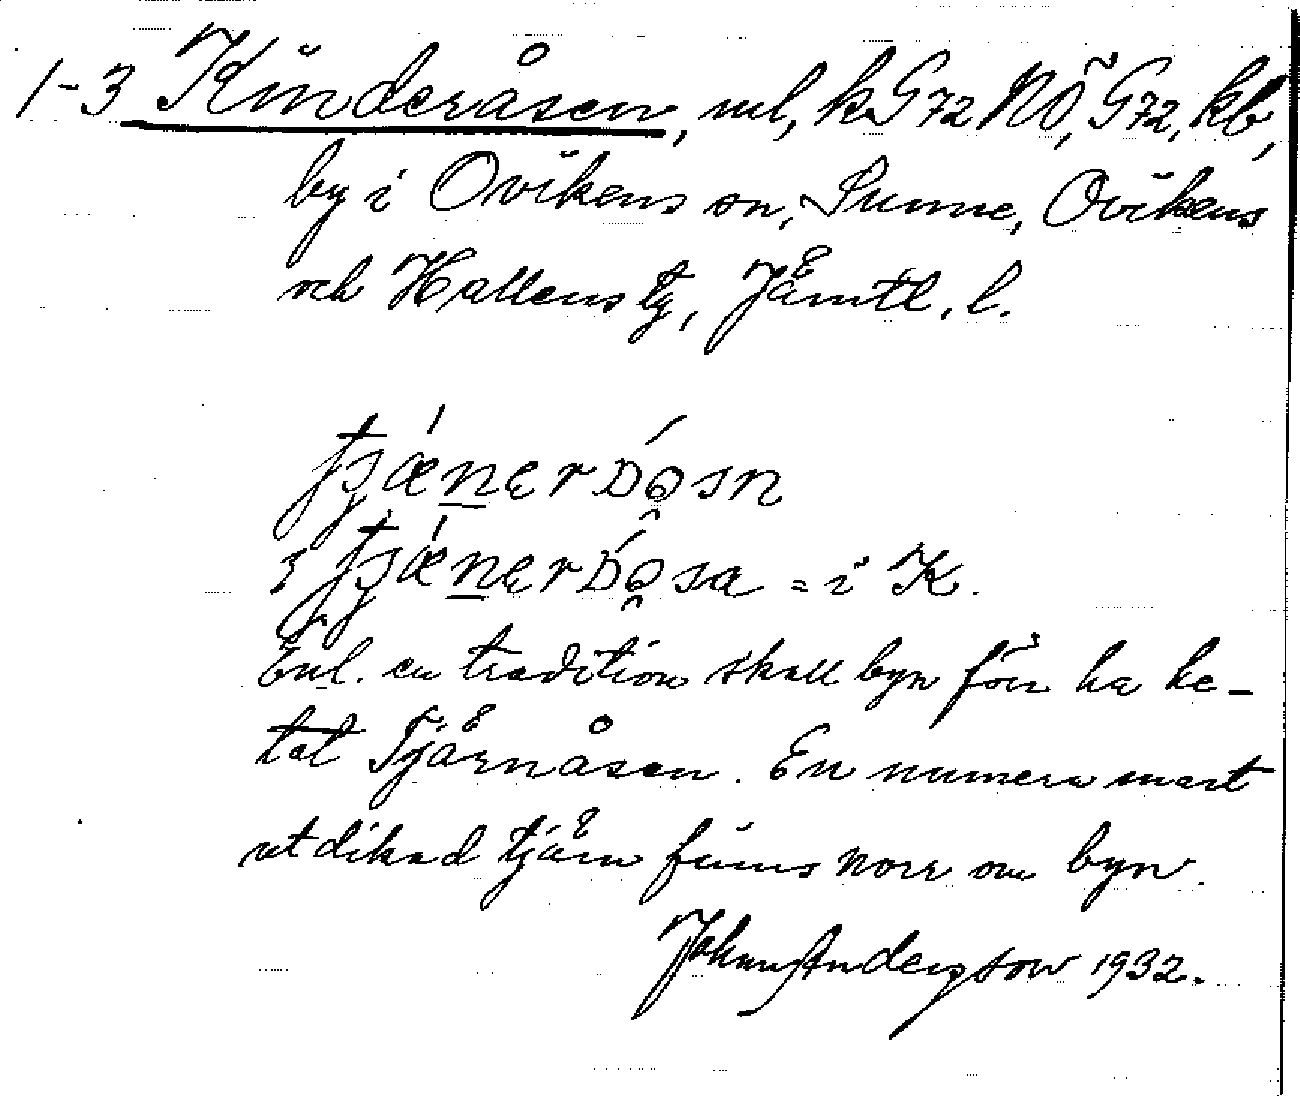 1-3 Kinderåsen, ml, kG72NÖ, G72, kb,
by i Ovikens sn, Sunne, Ovikens
och Hallens tg, Jämtl. l.
i K.
Enl. en tradition skall byn förr ha he-
tat Tjärnåsen. En numera mest
utdikad tjärn finns norr om byn.
Johan Andersson 1932.